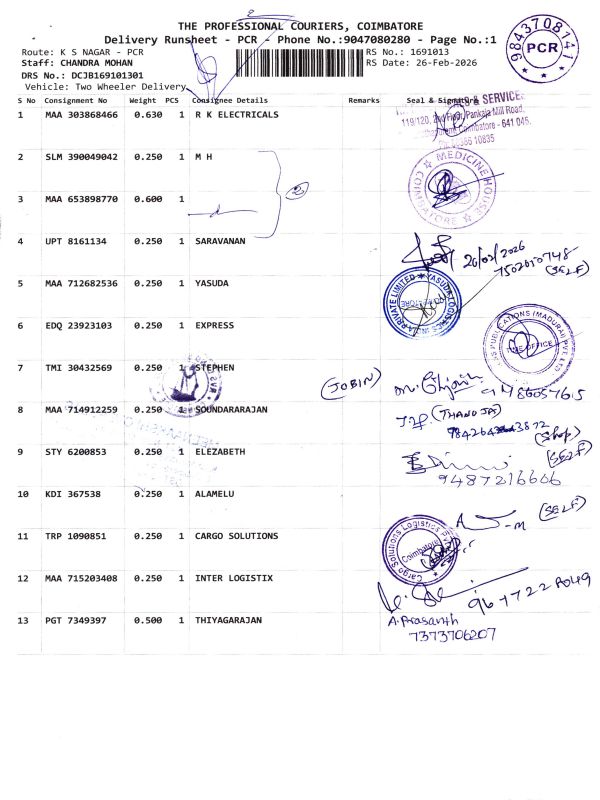 THE PROFESSIONAL COURIERS, COIMBATORE
Delivery Runsheet - PCR - Phone No.:9047080280 - Page No.:1
Route: K S NAGAR - PCR
RS No.: 1691013
Staff: CHANDRA MOHAN
RS Date: 26-Feb-2026
DRS No.: DCJB169101301
Vehicle: Two Wheeler Delivery
9843708141
PCR
S No Consignment No Weight PCS Consignee Details Remarks Seal & Signature
1 MAA 303868466 0.630 1 R K ELECTRICALS
& SERVICES
119/120, 2nd Floor, Pankaja Mill Road,
Coimbatore - 641 045.
10835
2 SLM 390049042 0.250 1 M H
MEDICINE HOUSE
COIMBATORE
3 MAA 653898770 0.600 1
2
4 UPT 8161134 0.250 1 SARAVANAN
26/02/2026
7502010748
(SELF)
5 MAA 712682536 0.250 1 YASUDA
PRIVATE LIMITED YASUDA LOGISTICS
6 EDQ 23923103 0.250 1 EXPRESS
PUBLICATIONS (MADURAI) PVT. LTD
TIME OFFICE
7 TMI 30432569 0.250 1 STEPHEN
(JOBIN)
9486057615
8 MAA 714912259 0.250 1 SOUNDARARAJAN
(THANUJA)
(Shop)
9 STY 6200853 0.250 1 ELEZABETH
(SELF)
9487216606
10 KDI 367538 0.250 1 ALAMELU
(SELF)
11 TRP 1090851 0.250 1 CARGO SOLUTIONS
Cargo Solutions Logistics Pvt
Coimbatore
12 MAA 715203408 0.250 1 INTER LOGISTIX
13 PGT 7349397 0.500 1 THIYAGARAJAN
A. Prasanth
7373706207